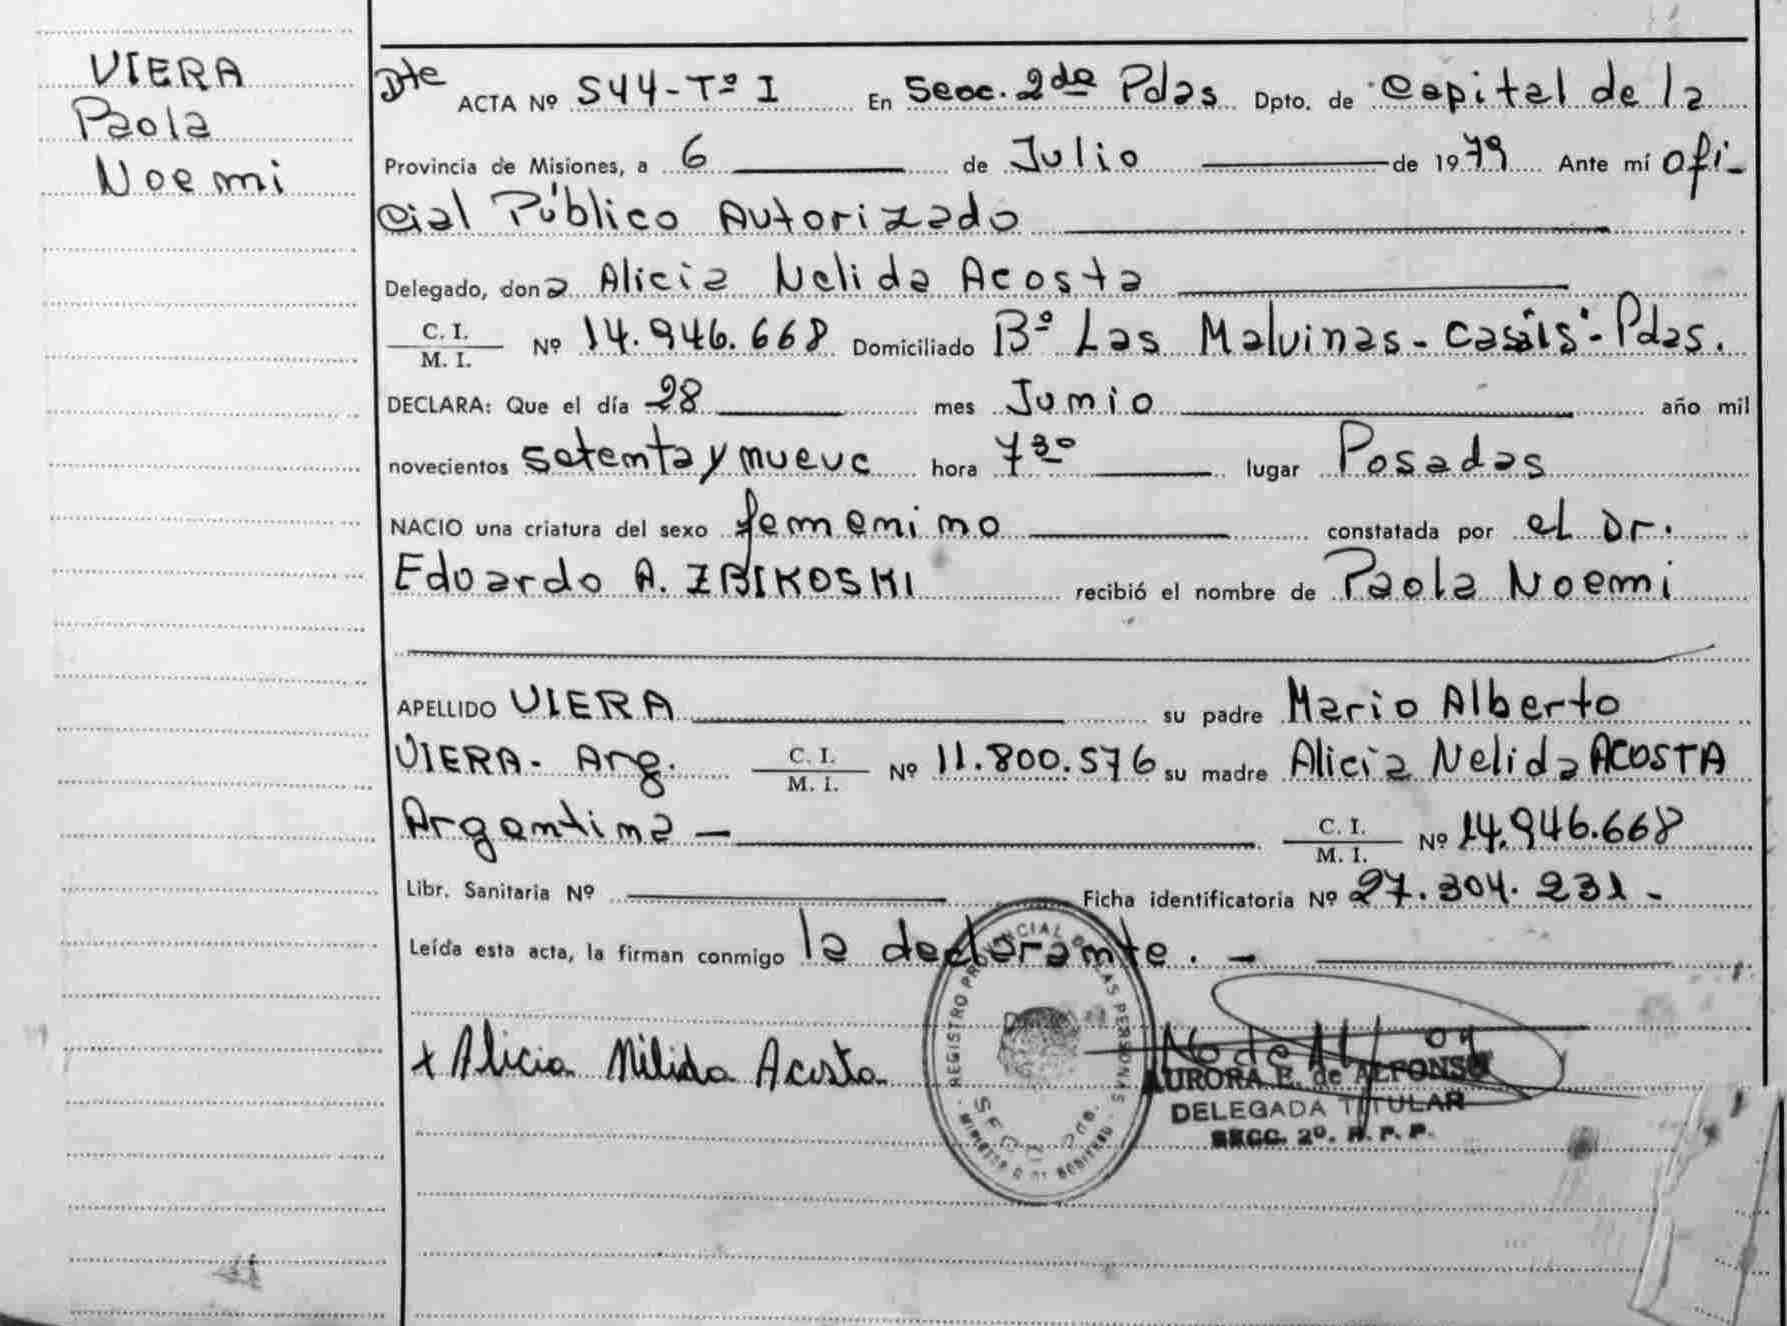 VIERA
Paola
Noemi
Dte ACTA Nº 544-Tº I En Secc. 2da Pdas Dpto. de Capital de la
Provincia de Misiones, a 6 de Julio de 1979 Ante mí ofi-
cial Público Autorizado
Delegado, dona Alicia Nelida Acosta
C. I.
M. I. Nº 14.946.668 Domiciliado Bº Las Malvinas - casais - Pdas.
DECLARA: Que el día 28 mes Junio año mil
novecientos setenta y nueve hora 7 30 lugar Posadas
NACIO una criatura del sexo femenino constatada por el Dr.
Eduardo A. ZBIKOSKI recibió el nombre de Paola Noemi
APELLIDO VIERA su padre Mario Alberto
VIERA - Arg. C. I.
M. I. Nº 11.800.576 su madre Alicia Nelida ACOSTA
Argentina - C. I.
M. I. Nº 14.946.668
Libr. Sanitaria Nº Ficha identificatoria Nº 27.304.231 -
Leída esta acta, la firman conmigo la declarante. -
x Alicia Nélida Acosta
REGISTRO PROVINCIAL DE LAS PERSONAS
AURORA E. de ALFONSO
DELEGADA TITULAR
SECC. 2º. R. P. P.